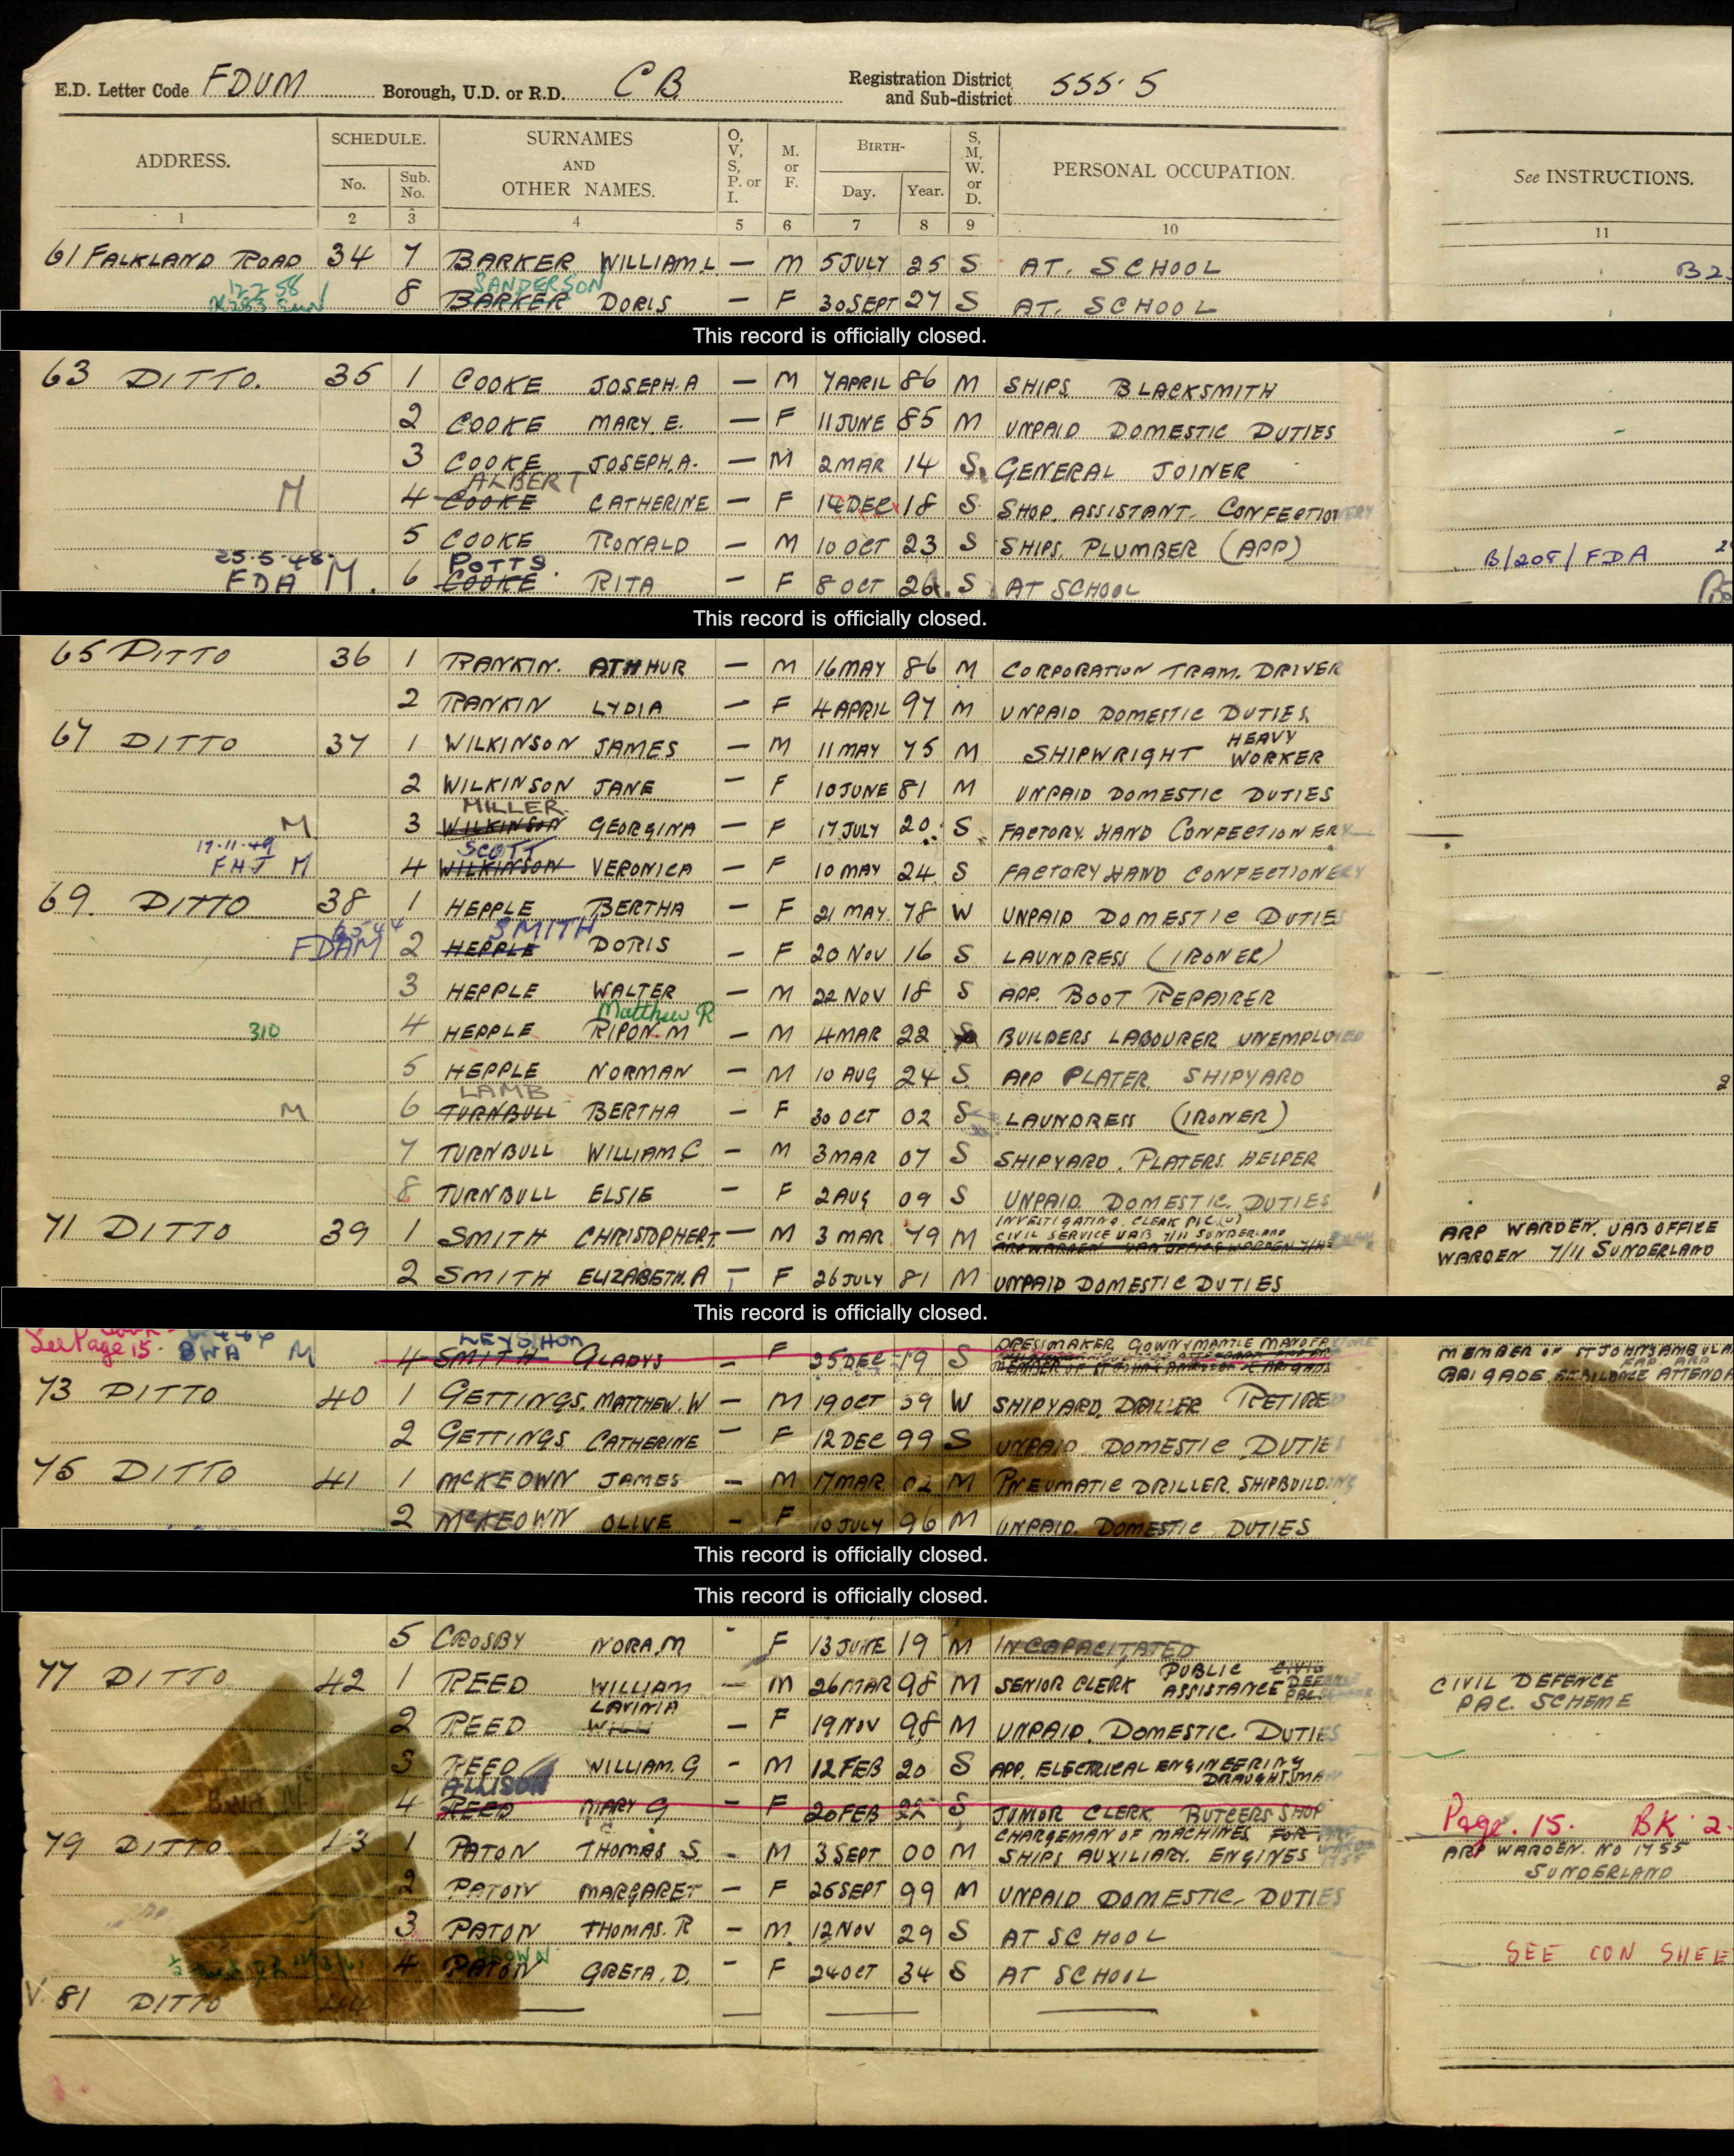 E.D. Letter Code FDUM Borough, U.D. or R.D. C B. Registration District and Sub-district 555·5
ADDRESS. SCHEDULE. No. Sub. No. SURNAMES AND OTHER NAMES. O, V, S, P. or I. M. or F. BIRTH- Day. Year. S, M, W. or D. PERSONAL OCCUPATION. See INSTRUCTIONS.
1 2 3 4 5 6 7 8 9 10 11
61 FALKLAND ROAD 34 7 BARKER WILLIAM L. — M 5 JULY 25 S AT. SCHOOL
12 2 58 SANDERSON
8 BARKER DORIS — F 30 SEPT 27 S AT. SCHOOL
This record is officially closed.
63 DITTO. 35 1 COOKE JOSEPH. A — M 7 APRIL 86 M SHIPS BLACKSMITH
2 COOKE MARY. E. — F 11 JUNE 85 M UNPAID DOMESTIC DUTIES
3 COOKE JOSEPH. A. — M 2 MAR 14 S. GENERAL JOINER
ALBERT
M 4 COOKE CATHERINE — F 14 DEC 18 S SHOP. ASSISTANT. CONFECTIONERY
5 COOKE RONALD — M 10 OCT 23 S SHIPS. PLUMBER (APP) B/208/FDA
25·5·48 POTTS.
FDA M. 6 COOKE RITA — F 8 OCT 26. S AT SCHOOL
This record is officially closed.
65 DITTO 36 1 RANKIN. ATHHUR — M 16 MAY 86 M CORPORATION TRAM. DRIVER
2 RANKIN LYDIA — F 4 APRIL 97 M UNPAID DOMESTIC DUTIES
67 DITTO 37 1 WILKINSON JAMES — M 11 MAY 75 M SHIPWRIGHT HEAVY WORKER
2 WILKINSON JANE — F 10 JUNE 81 M UNPAID DOMESTIC DUTIES
MILLER
M 3 WILKINSON GEORGINA — F 17 JULY 20. S FACTORY. HAND CONFECTIONERY
17·11·49 SCOTT
FHJ M 4 WILKINSON VERONICA — F 10 MAY 24. S FACTORY HAND CONFECTIONERY
69. DITTO 38 1 HEPPLE BERTHA — F 21 MAY. 78 W UNPAID DOMESTIC DUTIES
SMITH
FDAM 2 HEPPLE DORIS — F 20 NOV 16 S LAUNDRESS (IRONER)
3 HEPPLE WALTER — M 22 NOV 18 S APP. BOOT REPAIRER
Matthew R
310 4 HEPPLE RIPON. M — M 4 MAR 22 BUILDERS LABOURER UNEMPLOYED
5 HEPPLE NORMAN — M 10 AUG 24 S. APP PLATER. SHIPYARD
LAMB
M 6 TURNBULL BERTHA — F 30 OCT 02 S LAUNDRESS (IRONER)
7 TURNBULL WILLIAM C. — M 3 MAR 07 S SHIPYARD. PLATERS HELPER
8 TURNBULL ELSIE — F 2 AUG 09 S UNPAID. DOMESTIC. DUTIES
INVESTIGATING. CLERK
71 DITTO 39 1 SMITH CHRISTOPHER T. — M 3 MAR 79 M CIVIL SERVICE UAB 7/11 SUNDERLAND ARP WARDEN. UAB OFFICE
WARDEN 7/11 SUNDERLAND
2 SMITH ELIZABETH. A — F 26 JULY 81 M UNPAID DOMESTIC DUTIES
This record is officially closed.
See Page 15. BWA M LEYSHON DRESSMAKER GOWN & MANTLE MANUFACTURE
4 SMITH GLADYS — F 25 DEC 19 S MEMBER OF ST JOHNS AMBULA
BRIGADE ATTENDA
73 DITTO 40 1 GETTINGS. MATTHEW. W — M 19 OCT 59 W SHIPYARD. DRILLER RETIRED
2 GETTINGS. CATHERINE — F 12 DEC 99 S UNPAID DOMESTIC DUTIES
75 DITTO 41 1 MCKEOWN JAMES — M 17 MAR 02 M PNEUMATIC DRILLER. SHIPBUILDING
2 MCKEOWN OLIVE — F 10 JULY 96 M UNPAID. DOMESTIC DUTIES
This record is officially closed.
This record is officially closed.
5 CROSBY NORA. M F 13 JUNE 19 M INCAPACITATED
77 DITTO 42 1 REED WILLIAM — M 26 MAR 98 M SENIOR CLERK PUBLIC ASSISTANCE CIVIL DEFENCE
PAC. SCHEME
LAVINIA
2 REED — F 19 NOV 98 M UNPAID. DOMESTIC. DUTIES
3 REED WILLIAM. G — M 12 FEB 20 S APP. ELECTRICAL ENGINEERING
DRAUGHTSMAN
ALLISON
4 REED MARY G — F 20 FEB 22 S JUNIOR CLERK BUTCERS SHOP Page. 15. BK 2.
CHARGEMAN OF MACHINES FOR
79 DITTO 43 1 PATON THOMAS S. — M 3 SEPT 00 M SHIPS AUXILIARY. ENGINES ARP WARDEN. NO 1755
SUNDERLAND
2 PATON MARGARET — F 26 SEPT 99 M UNPAID DOMESTIC. DUTIES
3 PATON THOMAS. R — M. 12 NOV 29 S AT SCHOOL
BROWN SEE CON SHEE
4 PATON GRETA. D. — F 24 OCT 34 S AT SCHOOL
V. 81 DITTO — — — —